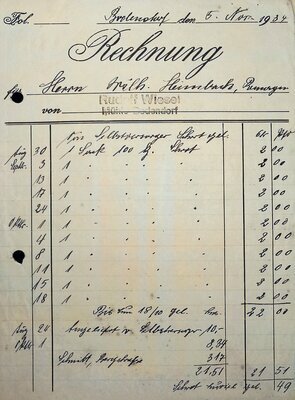 Fol. Bodendorf den 5. Nov. 1934
Rechnung
für Herrn Wilh. Heimbach, Remagen
von Rudolf Wiesel
Mühle Bodendorf
für Selbstversorger Schrot gel.
Aug 30 1 Sack 100 kg Schrot 2 00
Sept. 3 1 " " " " 2 00
13 1 " " " " 2 00
17 1 " " " " 2 00
24 1 " " " " 2 00
Oktbr. 1 1 " " " " 2 00
4 1 " " " " 2 00
8 1 " " " " 2 00
11 1 " " " " 2 00
15 1 " " " " 2 00
18 1 " " " " 2 00
Bis zum 18/10 gel. 22 00
Aug 24 Angeliefert 10,-
Oktbr. 1 8,34
3,17
21,51 21 51
Schrot zuviel gel. 49